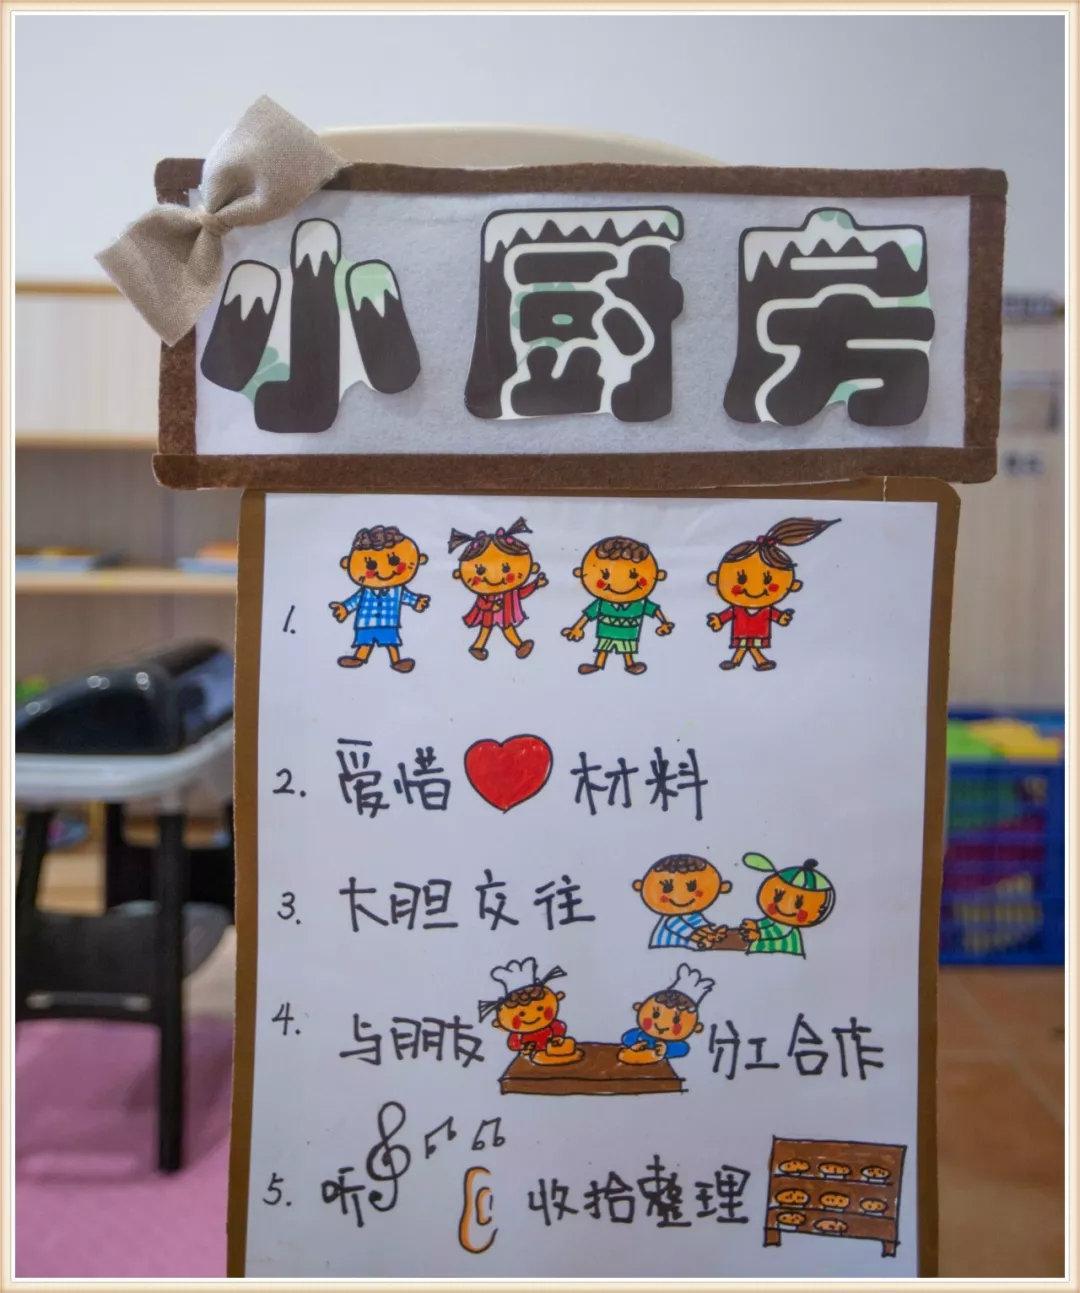 小厨房
1.
2. 爱惜材料
3. 大胆交往
4. 与朋友分工合作
5. 听收拾整理